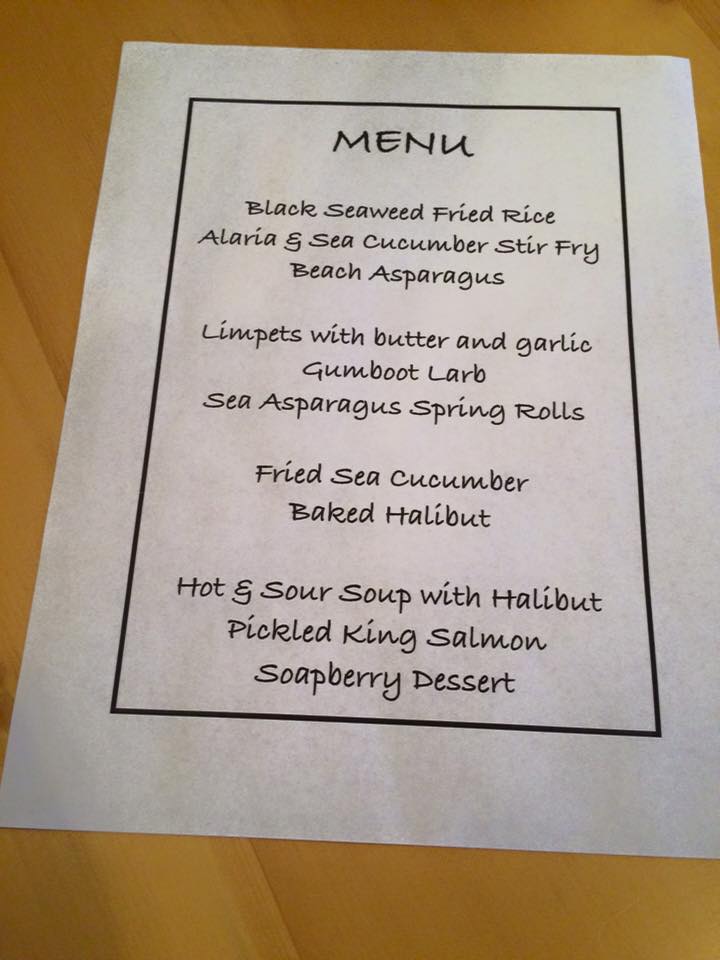 MENU
Black Seaweed Fried Rice
Alaria & Sea Cucumber Stir Fry
Beach Asparagus
Limpets with butter and garlic
Gumboot Larb
Sea Asparagus Spring Rolls
Fried Sea Cucumber
Baked Halibut
Hot & Sour Soup with Halibut
Pickled King Salmon
Soapberry Dessert